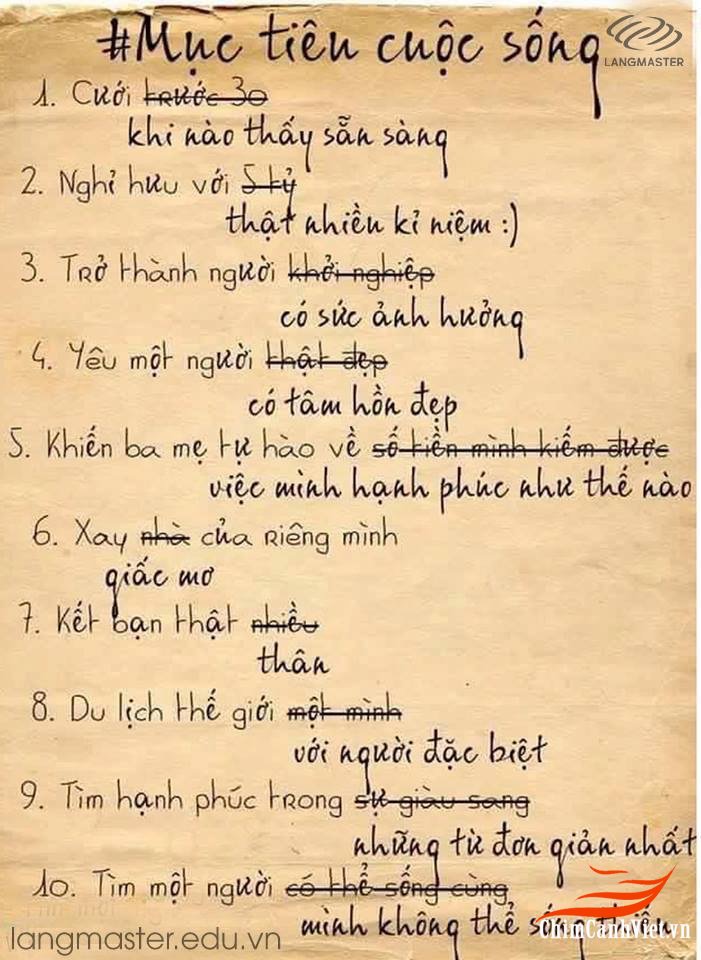 #Mục tiêu cuộc sống
LANGMASTER
1. Cưới trước 30
khi nào thấy sẵn sàng
2. Nghỉ hưu với 5 tỷ
thật nhiều kỉ niệm :)
3. Trở thành người khởi nghiệp
có sức ảnh hưởng
4. Yêu một người thật đẹp
có tâm hồn đẹp
5. Khiến ba mẹ tự hào về số tiền mình kiếm được
việc mình hạnh phúc như thế nào
6. Xay nhà của riêng mình
giấc mơ
7. Kết bạn thật nhiều
thân
8. Du lịch thế giới một mình
với người đặc biệt
9. Tìm hạnh phúc trong sự giàu sang
những từ đơn giản nhất
10. Tìm một người có thể sống cùng
mình không thể sống thiếu
ChimCanhViet.vn
langmaster.edu.vn